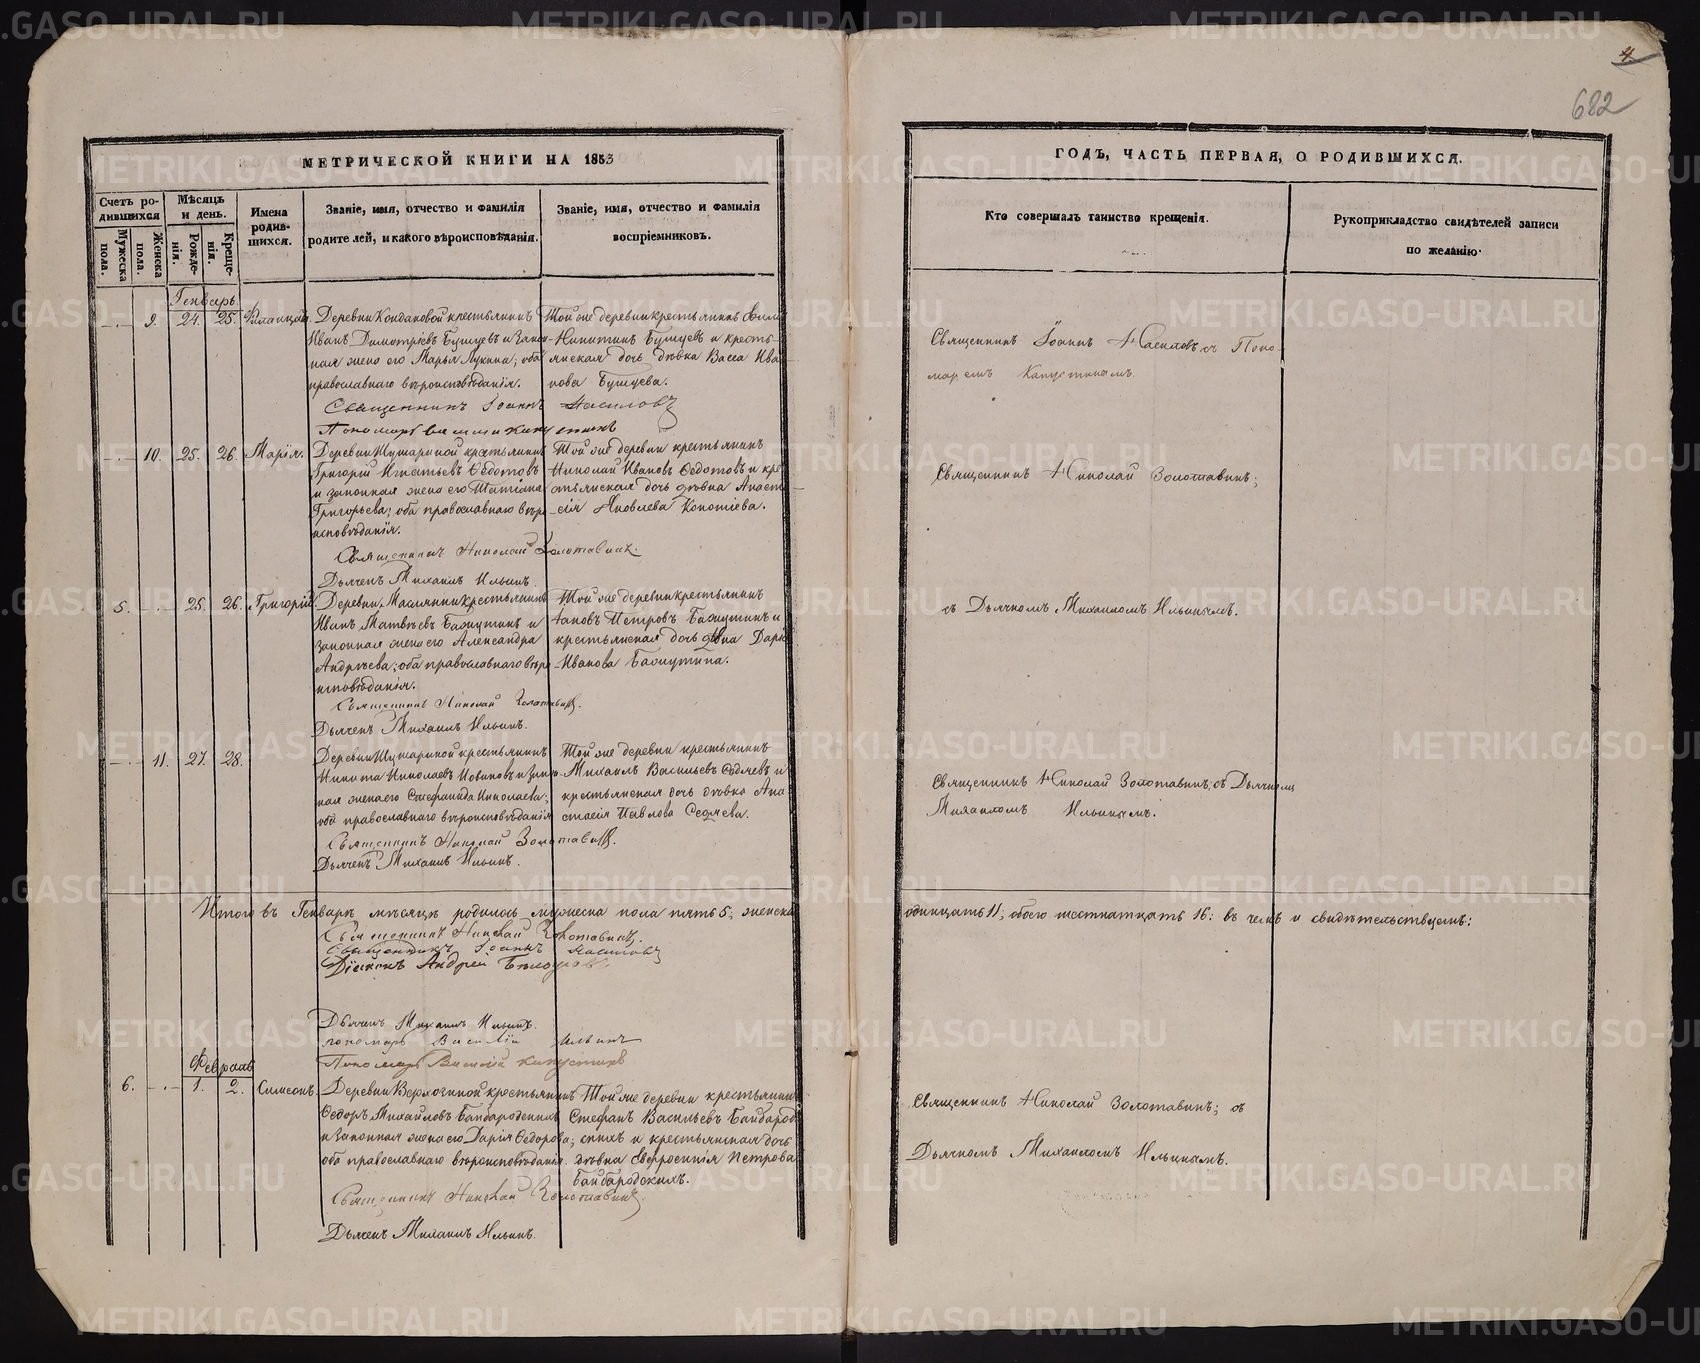 4
682
МЕТРИЧЕСКОЙ КНИГИ НА 1853
ГОДЪ, ЧАСТЬ ПЕРВАЯ, О РОДИВШИХСЯ.
Счетъ родившихся
Мужеска пола.
Женска пола.
Мѣсяцъ и день.
Рожденія.
Крещенія.
Имена родившихся.
Званіе, имя, отчество и фамилія
родителей, и какого вѣроисповѣданія.
Званіе, имя, отчество и фамилія
воспріемниковъ.
Кто совершалъ таинство крещенія.
Рукоприкладство свидѣтелей записи
по желанію.
Генварь
9. 24. 25.
Деревни Кондаковой крестьянинъ
Иванъ Димитріевъ Бушуевъ и закон-
ная жена его Марья Лукина, оба
православнаго вѣроисповѣданія.
Той же деревни крестьянинъ
Никитинъ Бушуевъ и кресть-
янская дочь дѣвка Васса Ива
нова Бушуева.
Священникъ Іоаннъ Насиловъ
Пономарь Капустинъ
Священникъ Іоаннъ Насиловъ съ Поно-
маремъ Капустинымъ.
10. 25. 26. Марія.
Деревни крестьянинъ
Григорій Игнатьевъ Ѳедотовъ
и законная жена его Татіана
Григорьева; оба православнаго вѣро
исповѣданія.
Той же деревни крестьянинъ
Николай Ивановъ Ѳедотовъ и кре
стьянская дочь дѣвка Анаста
сія Яковлева
Священникъ Николай Золотавинъ.
Дьячекъ Михаилъ Ильинъ.
Священникъ Николай Золотавинъ;
5. 25. 26. Григорій.
Деревни крестьянинъ
Иванъ Матвѣевъ и
законная жена его Александра
Андреева; оба православнаго вѣро
исповѣданія.
Той же деревни крестьянинъ
Петровъ и
крестьянская дочь дѣвка Дарья
Иванова
Священникъ Николай Золотавинъ.
Дьячекъ Михаилъ Ильинъ.
съ Дьячкомъ Михаиломъ Ильинымъ.
11. 27. 28.
Деревни крестьянинъ
Никита Николаевъ и закон-
ная жена его Стефанида Николаева;
оба православнаго вѣроисповѣданія
Той же деревни крестьянинъ
Михаилъ Васильевъ и
крестьянская дочь дѣвка Ана
стасія Павлова
Священникъ Николай Золотавинъ.
Дьячекъ Михаилъ Ильинъ.
Священникъ Николай Золотавинъ; съ Дьячкомъ
Михаиломъ Ильинымъ.
Итого въ Генварѣ мѣсяцѣ родилось мужеска пола пять 5; женска
одинцать 11; обоего шестнатцать 16: въ чемъ и свидѣтельствуемъ:
Священникъ Николай Золотавинъ.
Священникъ Іоаннъ Насиловъ
Діаконъ Андрей
Дьячекъ Михаилъ Ильинъ.
пономарь Василій Ильинъ
Пономарь Василій Капустинъ
Февраль
6. 1. 2. Симеонъ.
Деревни крестьянинъ
Ѳедоръ Михайловъ Байбародскихъ
и законная жена его Дарія Ѳедорова;
оба православнаго вѣроисповѣданія.
Той же деревни крестьянинъ
Стефанъ Васильевъ Байбарод-
скихъ и крестьянская дочь
дѣвка Петрова
Байбародскихъ.
Священникъ Николай Золотавинъ.
Дьячекъ Михаилъ Ильинъ.
Священникъ Николай Золотавинъ; съ
Дьячкомъ Михаиломъ Ильинымъ.
METRIKI.GASO-URAL.RU